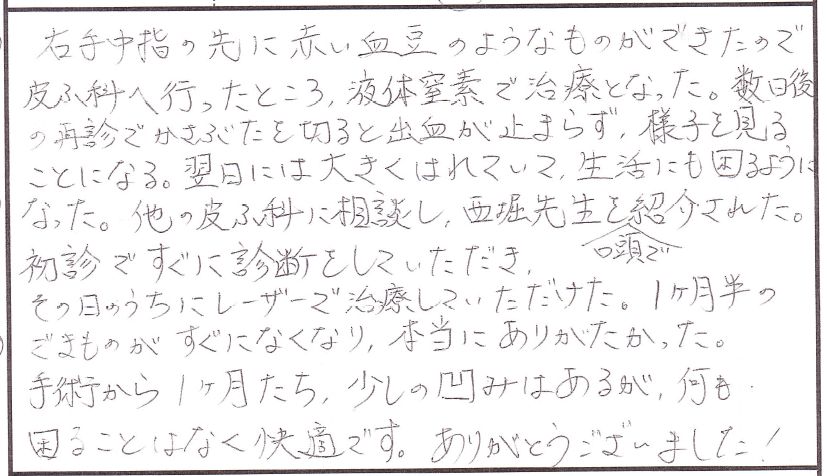 右手中指の先に赤い血豆のようなものができたので
皮ふ科へ行ったところ、液体窒素で治療となった。数日後
の再診でかさぶたを切ると出血が止まらず、様子を見る
ことになる。翌日には大きくはれていて、生活にも困るように
なった。他の皮ふ科に相談し、西堀先生を紹介された。
口頭で
初診ですぐに診断をしていただき、
その日のうちにレーザーで治療していただけた。1ヶ月半の
ごまものが すぐになくなり、本当にありがたかった。
手術から1ヶ月たち、少しの凹みはあるが、何も
困ることはなく快適です。ありがとうございました!